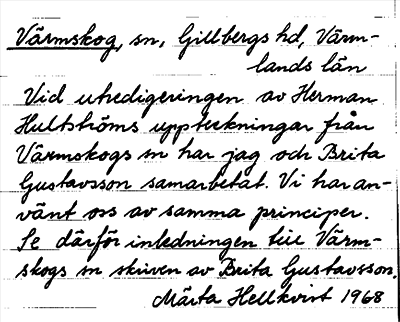 Värmskog, sn, Gillbergs hd, Värm-
lands län
Vid utredigeringen av Herman
Hultströms uppteckningar från
Värmskogs sn har jag och Brita
Gustavsson samarbetat. Vi har an-
vänt oss av samma principer.
Se därför inledningen till Värm-
skogs sn skriven av Brita Gustavsson.
Märta Hellkvist 1968